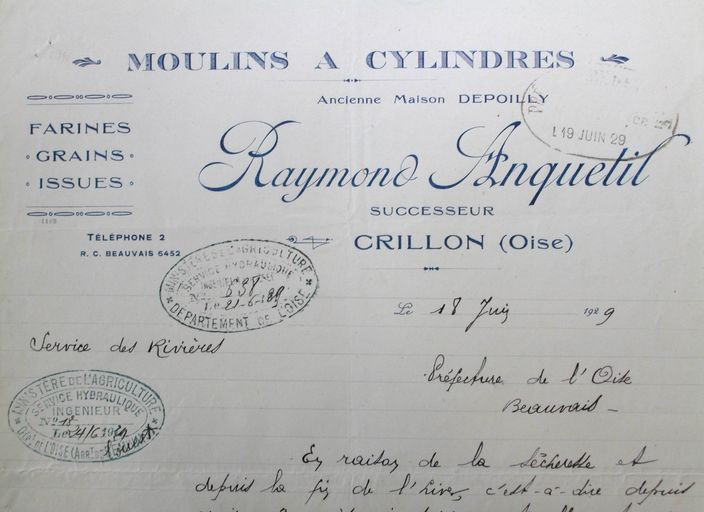 MOULINS A CYLINDRES
Ancienne Maison DEPOILLY
FARINES
GRAINS
ISSUES
Raymond Anquetil
SUCCESSEUR
CRILLON (Oise)
TÉLÉPHONE 2
R. C. BEAUVAIS 6452
L 19 JUIN 29
MINISTÈRE DE L'AGRICULTURE
SERVICE HYDRAULIQUE
Le 21-6-
DÉPARTEMENT DE L'OISE
Le 18 Juin 1929
Service des Rivières
Préfecture de l'Oise
Beauvais
MINISTÈRE DE L'AGRICULTURE
SERVICE HYDRAULIQUE
INGÉNIEUR
Le 24/6
En raison de la sècheresse et
depuis la fin de l'hiver, c'est-à-dire depuis